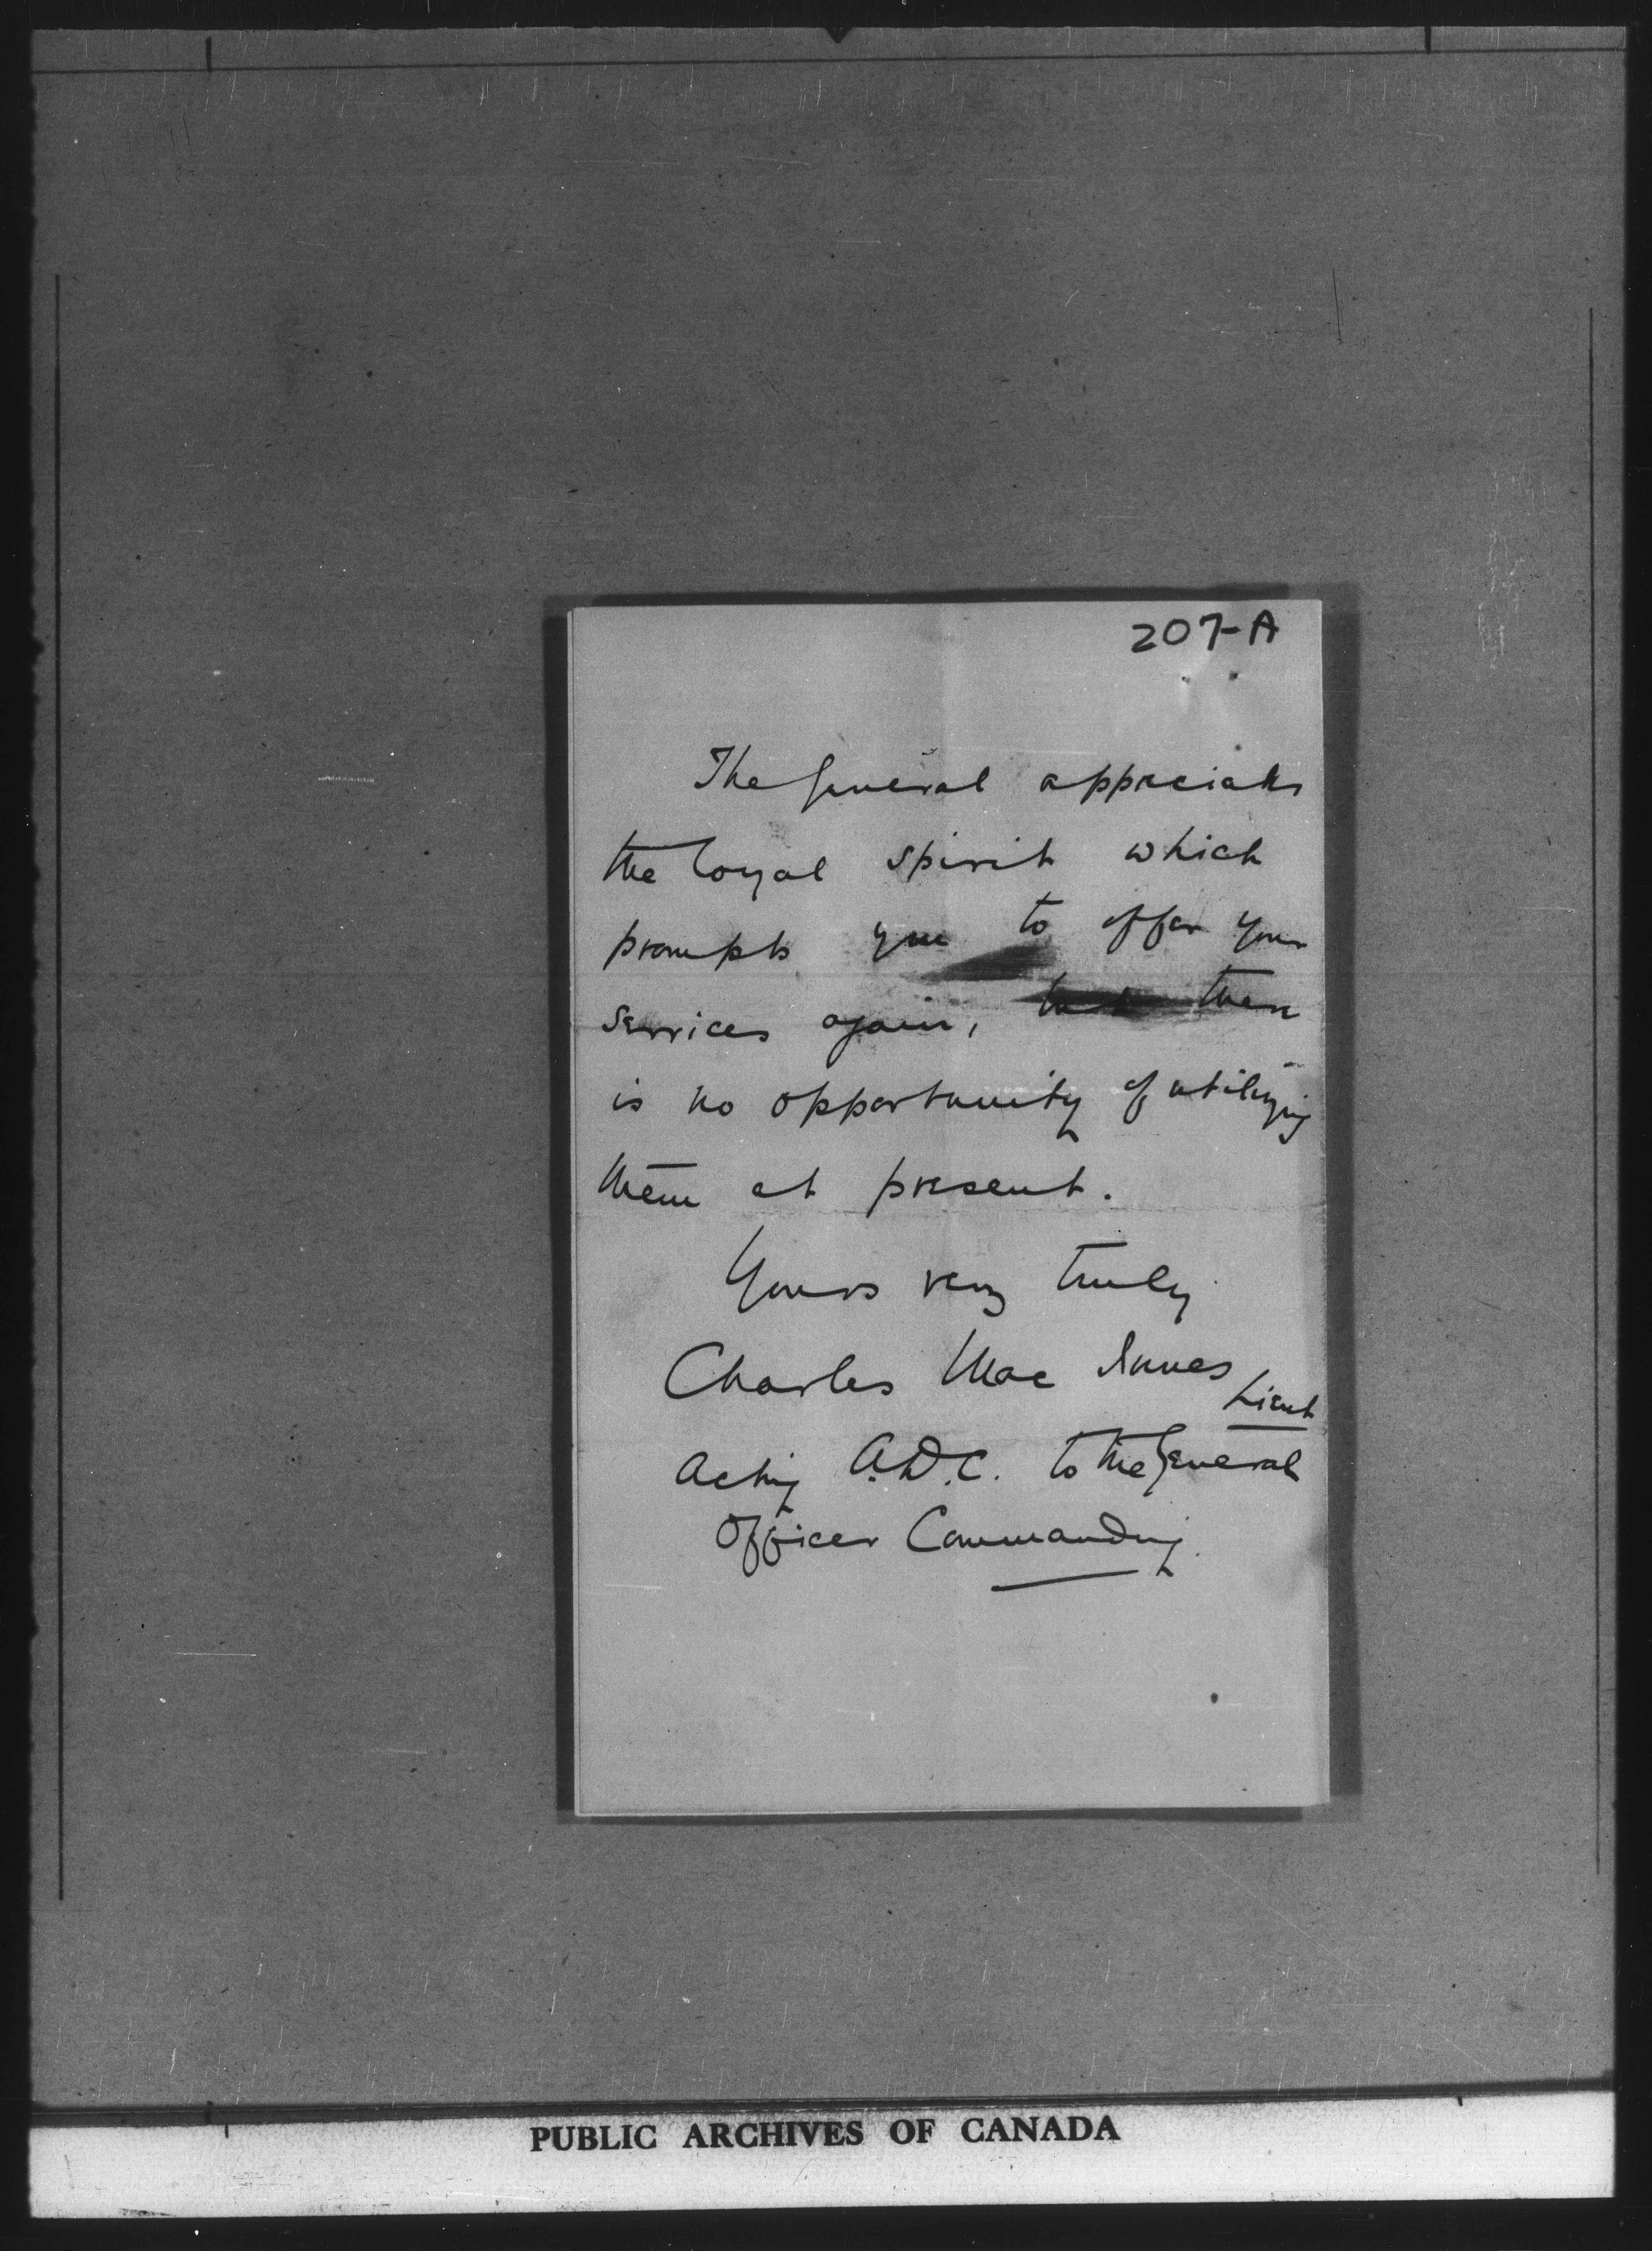 207-A
The General appreciates
the loyal spirit which
prompts you to offer your
services again, but there
is no opportunity of utilizing
them at present.
Yours very truly
Charles Mac Innes
Lieut
Acting A.D.C. to the General
Officer Commanding.
PUBLIC ARCHIVES OF CANADA